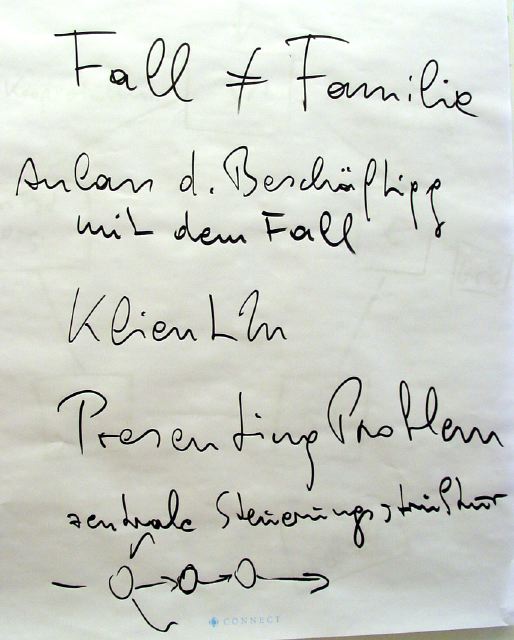 Fall ≠ Familie
Anlass d. Beschäftigg
mit dem Fall
KlientIn
Presenting Problem
zentrale Steuerungsstruktur
CONNECT